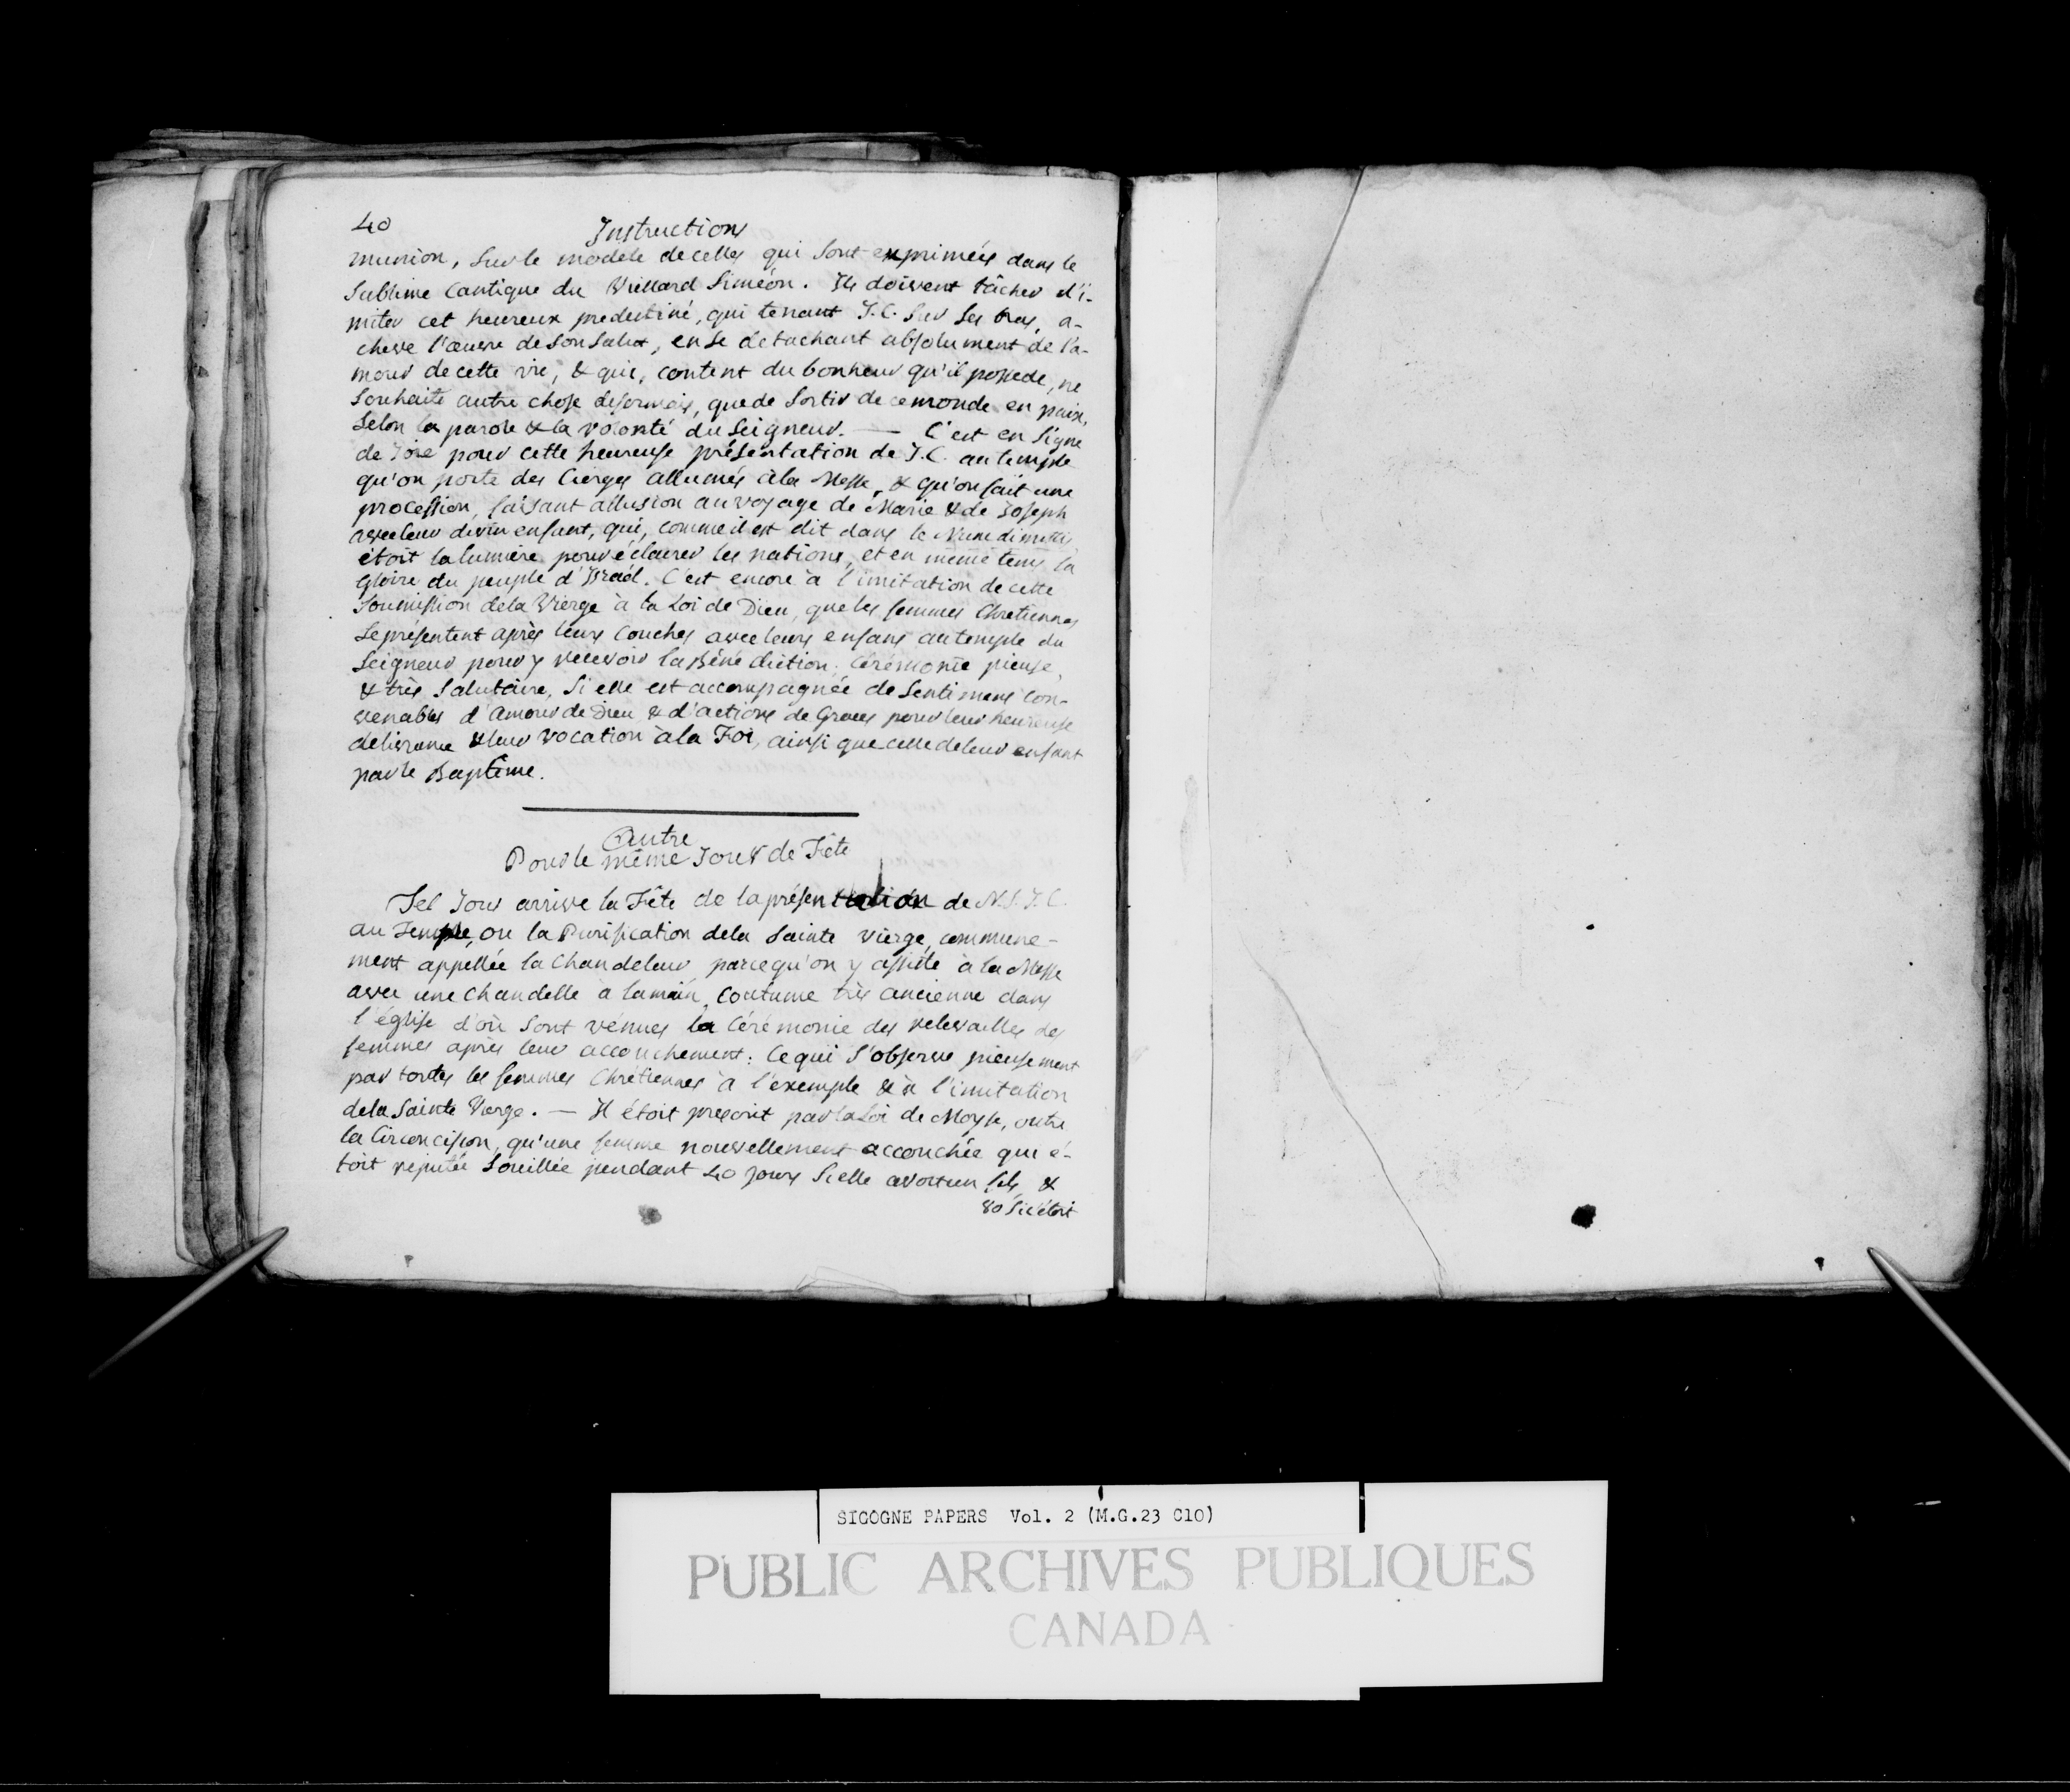 40
Instructions
munion, Sur le modele de celles qui Sont exprimées dans le
Sublime Cantique du Vieillard Siméon. Ils doivent tâcher d'i-
miter cet heureux predestiné, qui tenant J.C. Sur Ses bras, a-
cheve l'œuvre de Son Salut, en Se détachant absolument de l'a-
mour de cette vie, & qui, content du bonheur qu'il possede, ne
Souhaite autre chose desormais, que de Sortir de ce monde en paix,
Selon la parole & la volonté du Seigneur. — C'est en Signe
de Joie pour cette heureuse présentation de J.C. au temple
qu'on porte des Cierges allumés à la Messe, & qu'on fait une
procession, faisant allusion au voyage de Marie & de Joseph
avec leur divin enfant, qui, comme il est dit dans le Nunc dimittis
étoit la lumière pour éclairer les nations, et en même tems la
Gloire du peuple d'Israël. C'est encore à l'imitation de cette
Soumission de la Vierge à la Loi de Dieu, que les femmes Chretiennes
Se présentent après leurs Couches avec leurs enfans au temple du
Seigneur pour y recevoir la Bénédiction. Cérémonie pieuse,
& très Salutaire, Si elle est accompagnée de Sentimens Con-
venables d'Amour de Dieu & d'actions de Graces pour leur heureuse
delivrance & leur vocation à la Foi, ainsi que celle de leur enfant
par le Baptême.
Autre
Pour le même Jour de Fête
Tel Jour arrive la Fête de la présentation de N.S.J.C.
au Temple, ou la Purification de la Sainte Vierge, commune-
ment appellée la Chandeleur parce qu'on y assiste à la Messe
avec une Chandelle à la main, Coutume très ancienne dans
l'église d'où Sont vénues la Cérémonie des relevailles des
femmes après leur accouchement: Ce qui S'observe pieusement
par toutes les femmes Chrétiennes à l'exemple & à l'imitation
de la Sainte Vierge. — Il étoit prescrit par la Loi de Moyse, outre
la Circoncision, qu'une femme nouvellement accouchée qui é-
toit reputée Souillée pendant 40 jours Si elle avoit un fils &
80 Si c'étoit
SICOGNE PAPERS Vol. 2 (M.G.23 C10)
PUBLIC ARCHIVES PUBLIQUES
CANADA